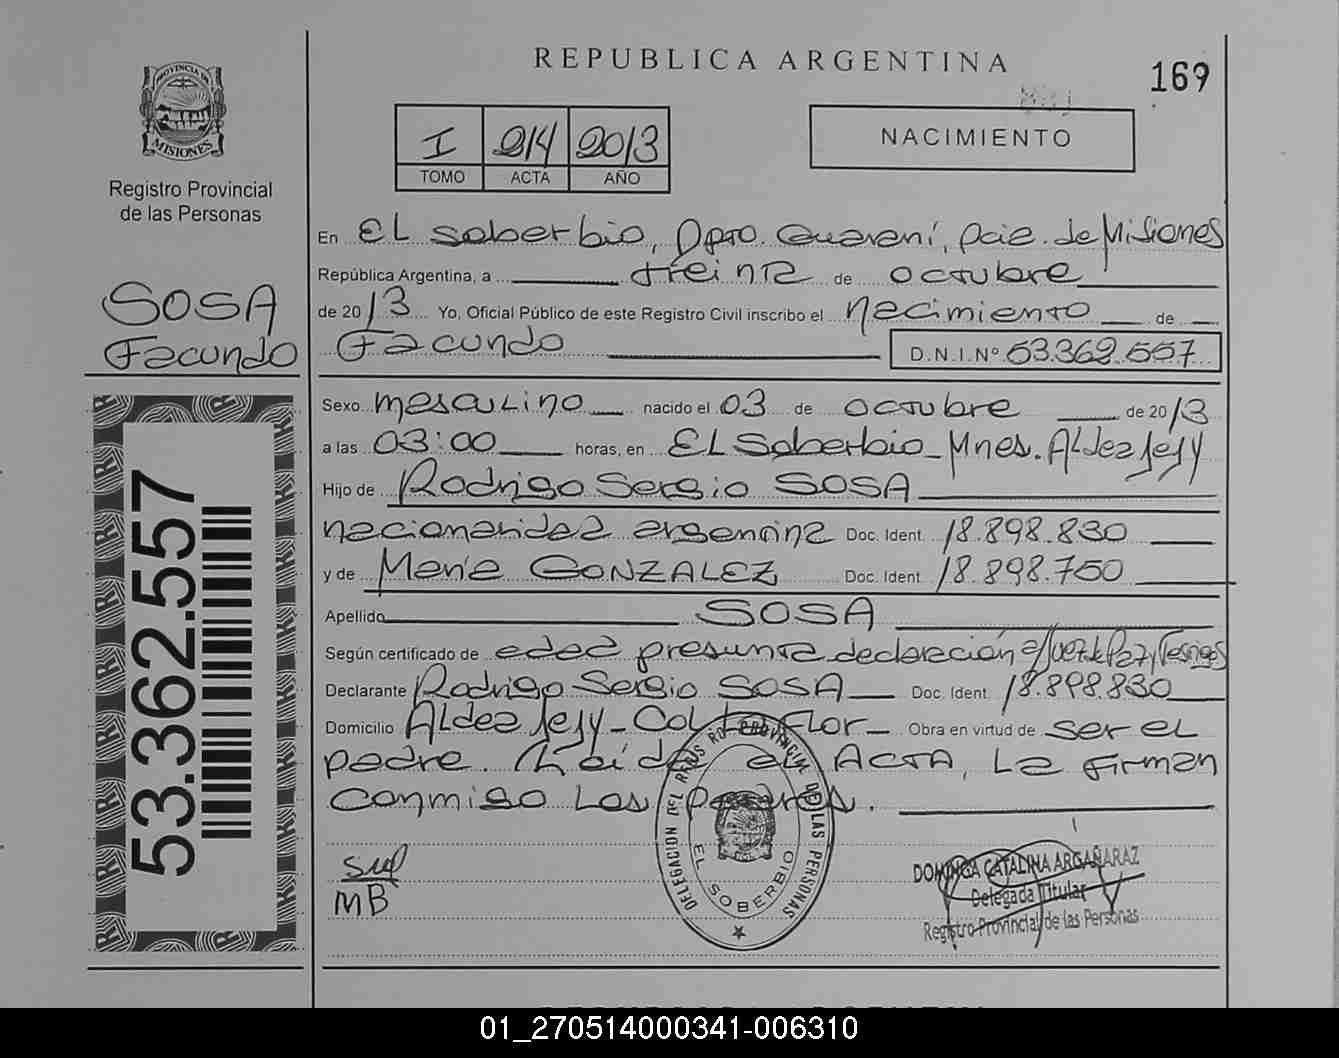 REPUBLICA ARGENTINA
169
PROVINCIA DE MISIONES
Registro Provincial
de las Personas
I 214 2013
TOMO ACTA AÑO
NACIMIENTO
En El Soberbio, Dpto. Guaraní, pcia. de Misiones
República Argentina, a treinta de octubre
de 2013 Yo, Oficial Público de este Registro Civil inscribo el nacimiento de
Facundo D.N.I.Nº 53.362.557
SOSA
Facundo
53.362.557
Sexo masculino nacido el 03 de octubre de 2013
a las 03:00 horas, en El Soberbio - Mnes. Aldea Jejy
Hijo de Rodrigo Sergio SOSA
nacionalidad argentina Doc. Ident. 18.898.830
y de María GONZALEZ Doc. Ident. 18.898.750
Apellido SOSA
Según certificado de edad presunta declaración a/Juez de Paz, Testigos
Declarante Rodrigo Sergio SOSA Doc. Ident. 18.898.830
Domicilio Aldea Jejy - Col. La Flor - Obra en virtud de ser el
padre. Leída el Acta, la firman
conmigo los padres.
DELEGACION DEL REGISTRO PROVINCIAL DE LAS PERSONAS
EL SOBERBIO
MB
DOMINGA CATALINA ARGAÑARAZ
Delegada Titular
Registro Provincial de las Personas
01_270514000341-006310